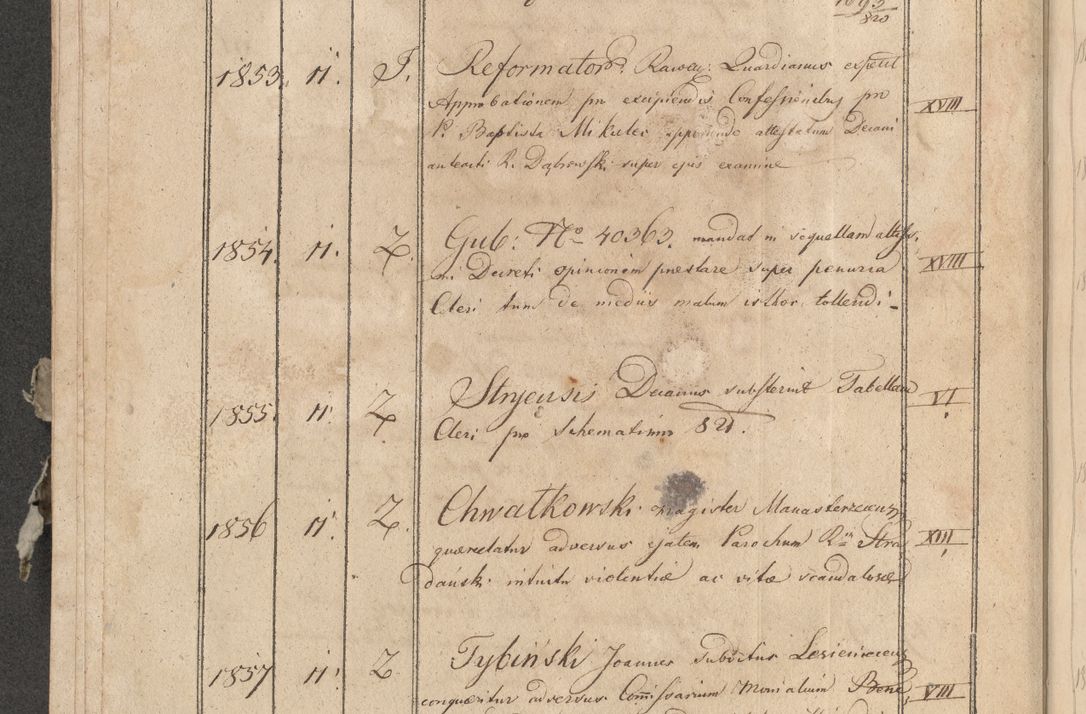 1693/820
1853. 11. J. Reformator: Rawen: Quardianus expetit
Approbationem pro excipiendis Confessionibus pro XVIII
P. Baptista Mikulec apponendo attestatum Decani
anteacti R. Dąbrowski super ejus examine
1854. 11. Z. Gub: No 40363. mandat in sequellam
Decreti opinionem praestare super penuria XVIII
Cleri tum de mediis malum isthoc tollendi -
1855. 11. Z. Stryensis Decanus substernit Tabellam VI
Cleri pro Schematismo 821.
1856 11. Z. Chwatkowski Magister Manasterzecens
quaerelatur adversus ejatem Parochum Rm Stra XIII
dański intuitu violentiae ac vitae scandalosae
1857 11. Z Tybiński Joannes subditus
conqueritur adversus Comissarium Monialium Bene VIII